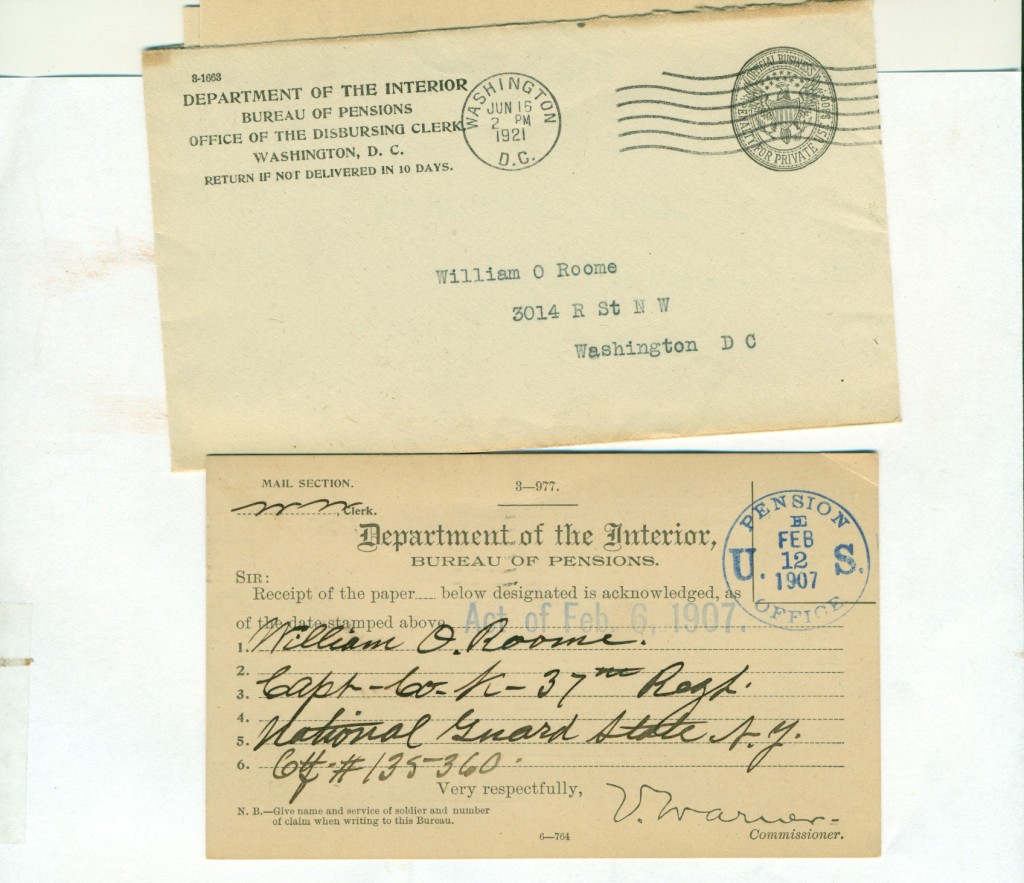 8-1663
DEPARTMENT OF THE INTERIOR
BUREAU OF PENSIONS
OFFICE OF THE DISBURSING CLERK
WASHINGTON, D. C.
RETURN IF NOT DELIVERED IN 10 DAYS.
WASHINGTON
JUN 16
2 PM
1921
D.C.
OFFICIAL BUSINESS
PENALTY FOR PRIVATE USE $300
William O Roome
3014 R St N W
Washington D C
MAIL SECTION.
3—977.
Clerk.
Department of the Interior,
BUREAU OF PENSIONS.
PENSION
E
FEB
U. 12 S.
1907
OFFICE
SIR:
Receipt of the paper below designated is acknowledged, as
of the date stamped above. Act of Feb. 6, 1907.
1. William O. Roome.
2.
3. Capt-Co-K-37th Regt.
4.
5. National Guard State N.Y.
6. Ctf #135360.
Very respectfully,
V. Warner.
Commissioner.
N. B.—Give name and service of soldier and number
of claim when writing to this Bureau.
6—764